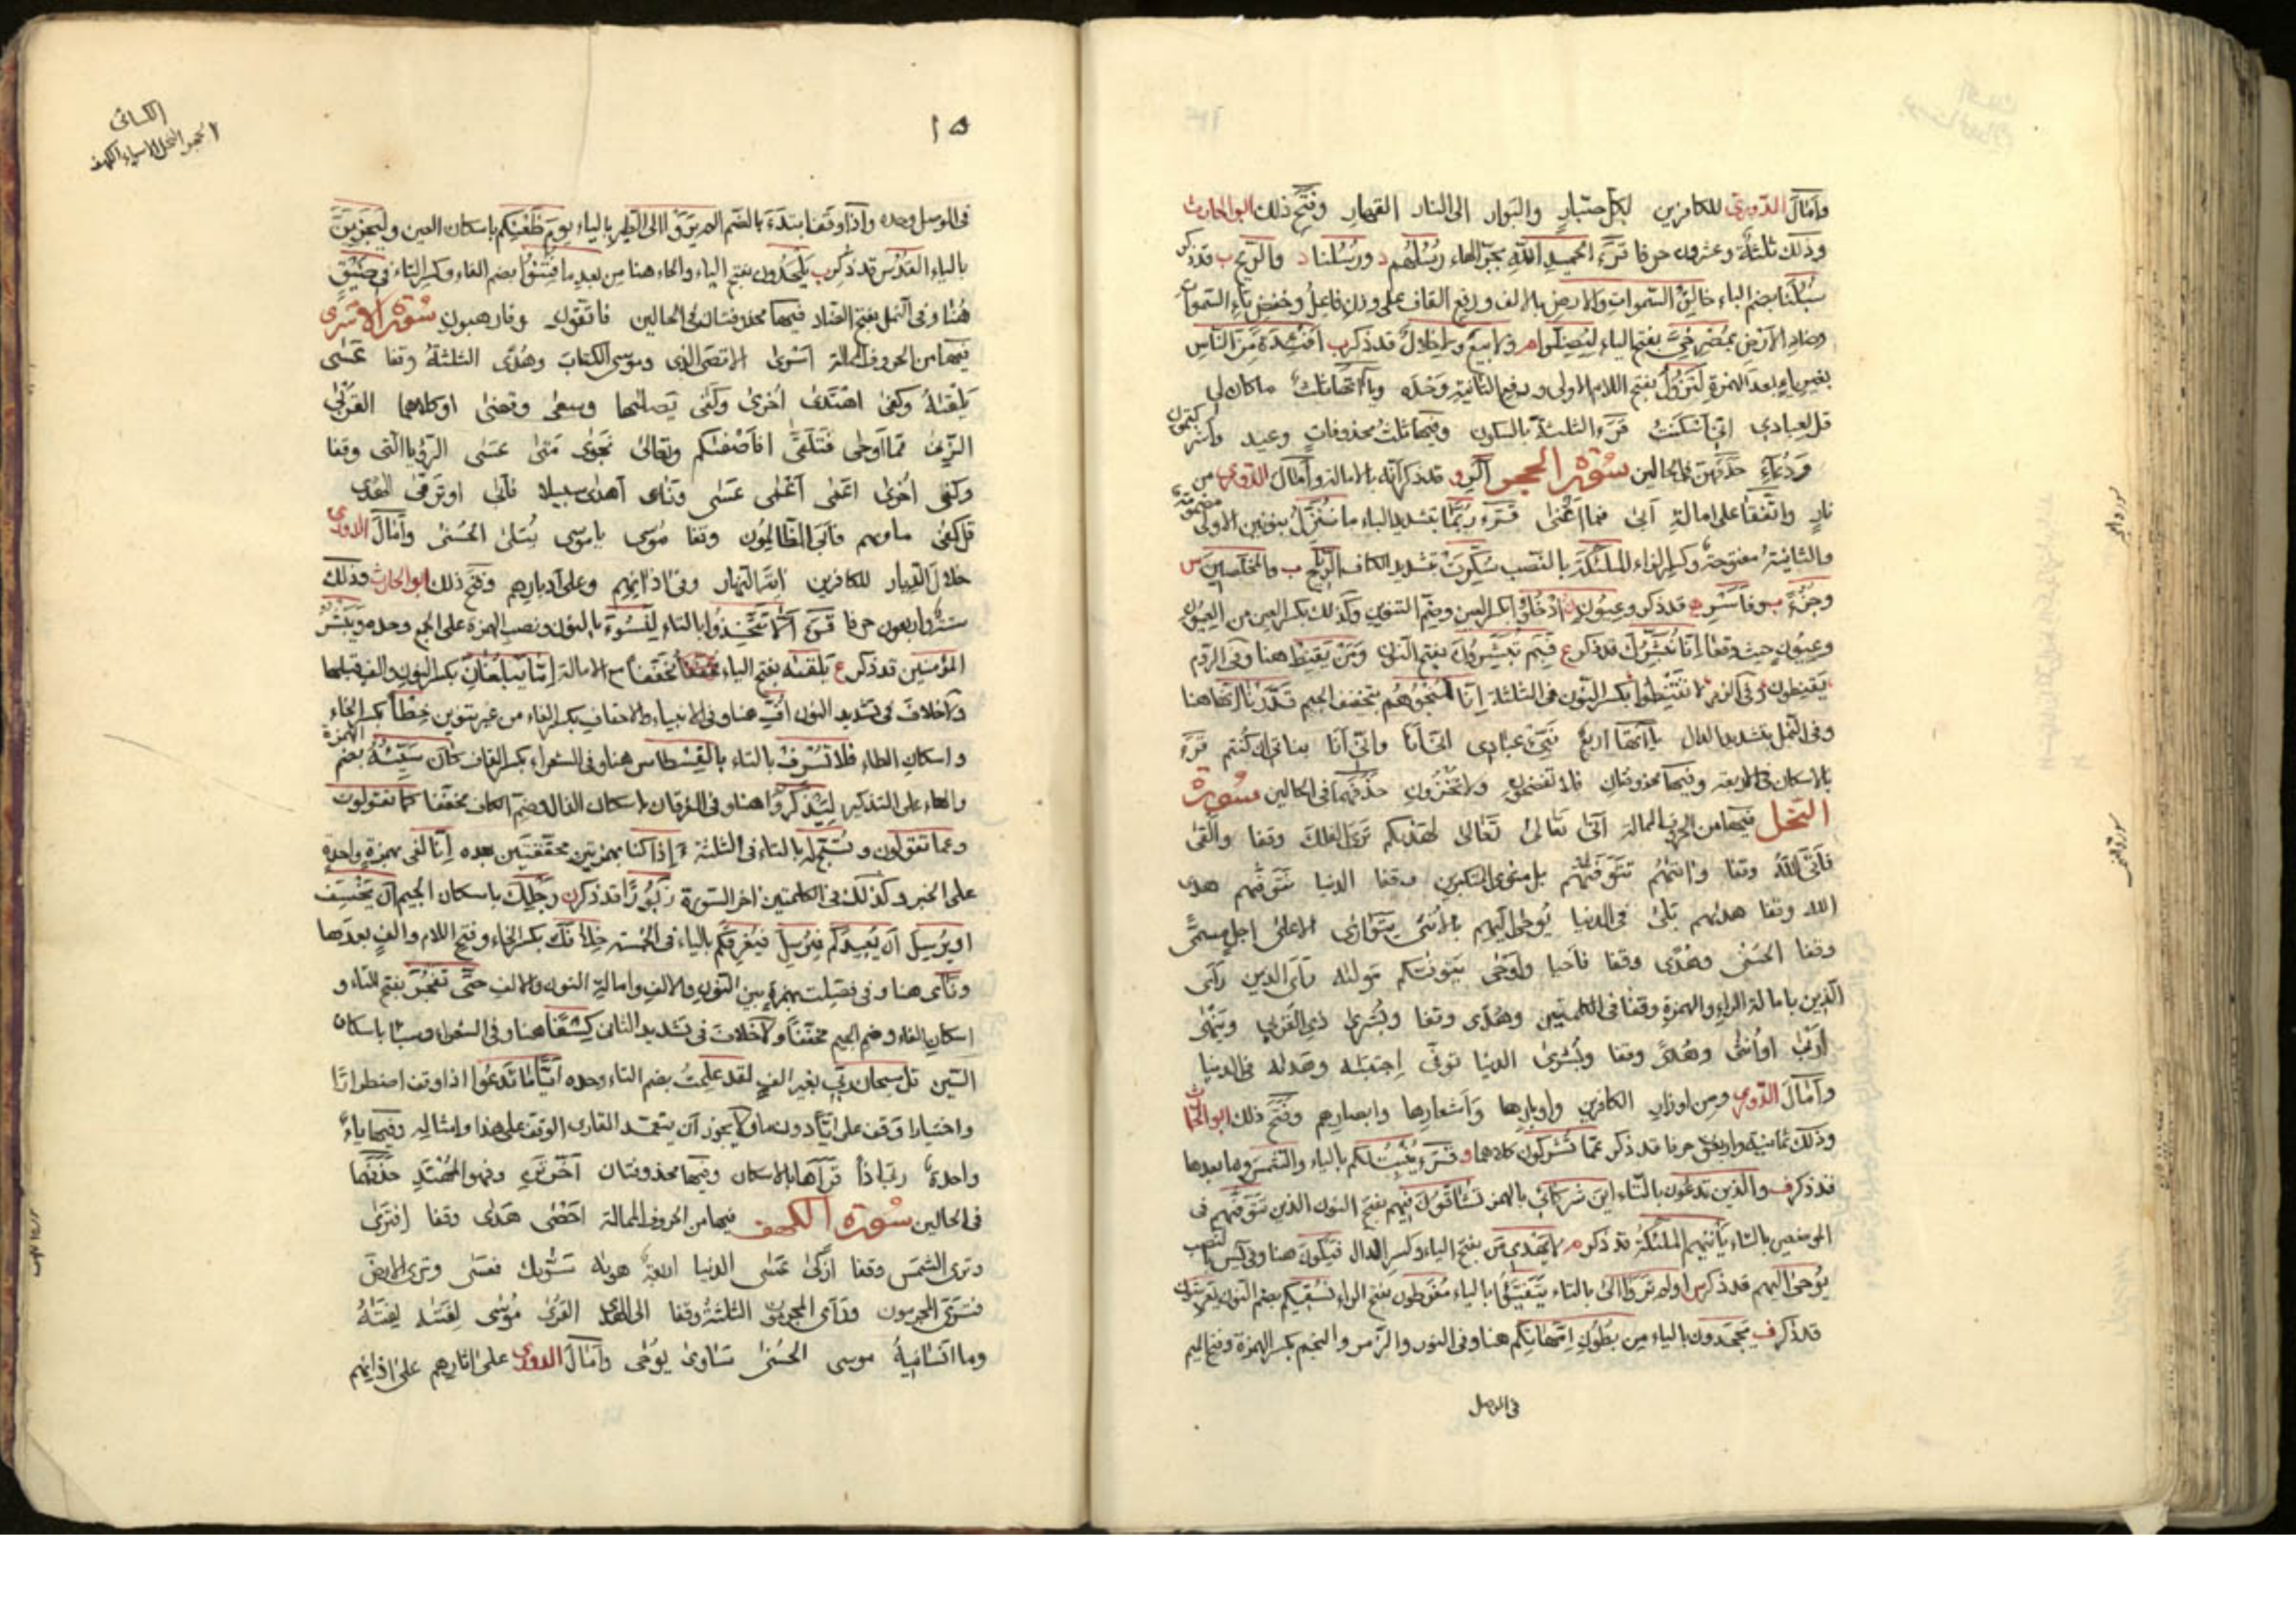 وأمال الدوري للكافرين لكل جبار والبوار الى النار القهار وفتح ذلك ابو الحارث
وذلك ثلثة وعشرون حرفا قرء الحميد الله بجر الهاء رسلهم د ورسلنا د والريح ب قد ذكر
سبلنا بضم الباء خالق السموات والارض بالالف ورفع القاف على وزن فاعل وخفض تاء السموات
وضاد الارض بمصرخي بفتح الياء ليضلوا م ولا بيع ولا خلال قد ذكر ب افئدة من الناس
بغير ياء بعد الهمزة لتزول بفتح اللام الاولى ورفع الثانية وحده ويا آتها ثلث ماكان لي
قل لعبادي اني اسكنت قرء الثلثة بالسكون وفيها ثلث محذوفات وعيد واشركتمون
ودعاء حذفهن في الحالين سورة الحجر الر و قد ذكر انه بالامالة وأمال الدوري من
نار واتفقا على امالة ابى فما اغنى قرء ربما بتشديد الباء ما ننزل بنونين الاولى مضمومة
والثانية مفتوحة وكسر الزاء الملئكة بالنصب سكرت بتشديد الكاف الريح ب والمخلصين س
وجزء ب وفاسر ه قد ذكر وعيون ادخلوا بكسر العين وضم التنوين وكذلك بكسر العين من العيون
وعيون حيث وقعا انا نبشرك قد ذكر ع فبم تبشرون بفتح النون ومن يقنط هنا وفي الروم
يقنطون وفي الزمر لا تقنطوا بكسر النون في الثلثة انا لمنجوهم بتخفيف الجيم قدرنا انها هنا
وفي النمل بتشديد الدال يا آتها اربع نبئ عبادي اني انا واني انا بناتي ان كنتم قرء
بالاسكان في الاربعة وفيها محذوفتان فلا تفضحون ولا تخزون حذفهما في الحالين سورة
النحل فيها من الحروف الممالة اتى تعالى تعالى لهديكم ترى الفلك وقفا والقى
فاتى الله وقفا واتيهم تتوفيهم بلى مثوى المتكبرين وقفا الدنيا تتوفيهم هدى
الله وقفا هديهم بلى في الدنيا يوحى اليهم بالانثى يتوارى الاعلى اجل مسمى
وقفا الحسنى وهدى وقفا فاحيا واوحى يتوفيكم موليه رأى الذين رأى
الذين بامالة الراء والهمزة وقفا في الكلمتين وهدى وقفا وبشرى ذي القربى وينهى
اربى او انثى وهدى وقفا وبشرى الدنيا توفى اجتبيه وهديه في الدنيا
وأمال الدوري ومن اوزار الكافرين واوبارها واشعارها وابصارهم وفتح ذلك ابو الحارث
وذلك ثمانية واربعون حرفا قد ذكر عما تشركون كلاهما و قرء ينبت لكم بالياء والشمس وما بعدها
قد ذكر ف والذين تدعون بالتاء اين شركائي بالهمز تشاقون فيهم بفتح النون الذين تتوفيهم في
الموضعين بالتاء يأتيهم الملئكة قد ذكر م لا يهدي من بفتح الياء وكسر الدال فيكون هنا وفي يس بالنصب
يوحى اليهم قد ذكر س اولم تروا الى بالتاء يتفيؤا بالياء مفرطون بفتح الراء نسقيكم بضم النون يعرشون
قد ذكر ف يجحدون بالياء من بطون امهاتكم هنا وفي النور والزمر والنجم بكسر الهمزة وفتح الميم
في الوصل
سورة الحجر
سورة النحل
١٥
الكسائي
الحجر النحل الاسراء الكهف
في الوصل وحده واذا وقفا ابتدء بالضم الم يروا الى الطير بالياء يوم ظعنكم باسكان العين وليجزين
بالياء القدس قد ذكر ب يلحدون بفتح الياء والحاء هنا من بعد ما فتنوا بضم الفاء وكسر التاء في ضيق
هنا وفي النمل بفتح الضاد فيها محذوفتان في الحالين فاتقون وفارهبون سورة الاسرى
فيها من الحروف الممالة اسرى الاقصى الذي وموسى الكتاب وهدى الثلثة وقفا عسى
يلقيه وكفى اهتدى اخرى وكفى يصليها وسعى وقضى او كلاهما القربى
الزنى مما اوحى فتلقى افاصفيكم وتعالى نجوى متى عسى الرؤيا التي وقفا
وكفى اخرى اعمى اعمى عسى ونأى اهدى سبيلا فابى او ترقى الهدى
قل كفى مأويهم فابى الظالمون وقفا موسى يا موسى يتلى الحسنى وأمال الدوري
خلال الديار للكافرين النهار وفي اذانهم وعلى ادبارهم وفتح ذلك ابو الحارث وذلك
ستة واربعون حرفا قرء الا تتخذوا بالتاء لنسوء بالنون ونصب الهمزة على الجمع وحده ويبشر
المؤمنين قد ذكر ع يلقيه بفتح الياء مخففا مع الامالة اما يبلغان بكسر النون والف قبلها
ولا خلاف في تشديد النون اف هنا وفي الانبياء والاحقاف بكسر الفاء من غير تنوين خطأ بكسر الخاء
واسكان الطاء فلا تسرف بالتاء بالقسطاس هنا وفي الشعراء بكسر القاف كان سيئه بضم الهمزة
والهاء على التذكير ليذكروا هنا وفي الفرقان باسكان الذال وضم الكاف مخففا كما تقولون
وعما تقولون وتسبح له بالتاء في الثلثة ءاذا كنا بهمزتين محققتين بعده انا لفي بهمزة واحدة
على الخبر وكذلك في الكلمتين اخر السورة زبورا قد ذكر ن ورجلك باسكان الجيم ان يخسف
او يرسل ان يعيدكم فيرسل فيغرقكم بالياء في الخمسة خلافك بكسر الخاء وفتح اللام والف بعدها
ونأى هنا وفي فصلت بهمزة بين النون والالف وامالة النون والالف حتى تفجر بفتح التاء و
اسكان الفاء وضم الجيم مخففا ولا خلاف في تشديد الثاني كسفا هنا وفي الشعراء وسبأ باسكان
السين قل سبحان ربي بغير الف لقد علمت بضم التاء وحده ايا ما تدعوا اذا وقف اضطرارا
واختيارا وقف على ايا دون ما ولا يجوز ان يتعمد القاري الوقف على هذا وامثاله وفيها ياء
واحدة ربي اذا قرآها بالاسكان وفيها محذوفتان اخرتن وفهو المهتد حذفهما
في الحالين سورة الكهف فيها من الحروف الممالة احصى هدى وقفا افترى
وترى الشمس وقفا ازكى عسى الدنيا هويه سويك فعسى وترى الارض
فترى المجرمين ورأى المجرمون الثلثة وقفا الى الهدى القرى موسى لفتيه لفتيه
وما انسانيه موسى الحسنى ساوى يوحى وأمال الدوري على اثارهم على اذانهم